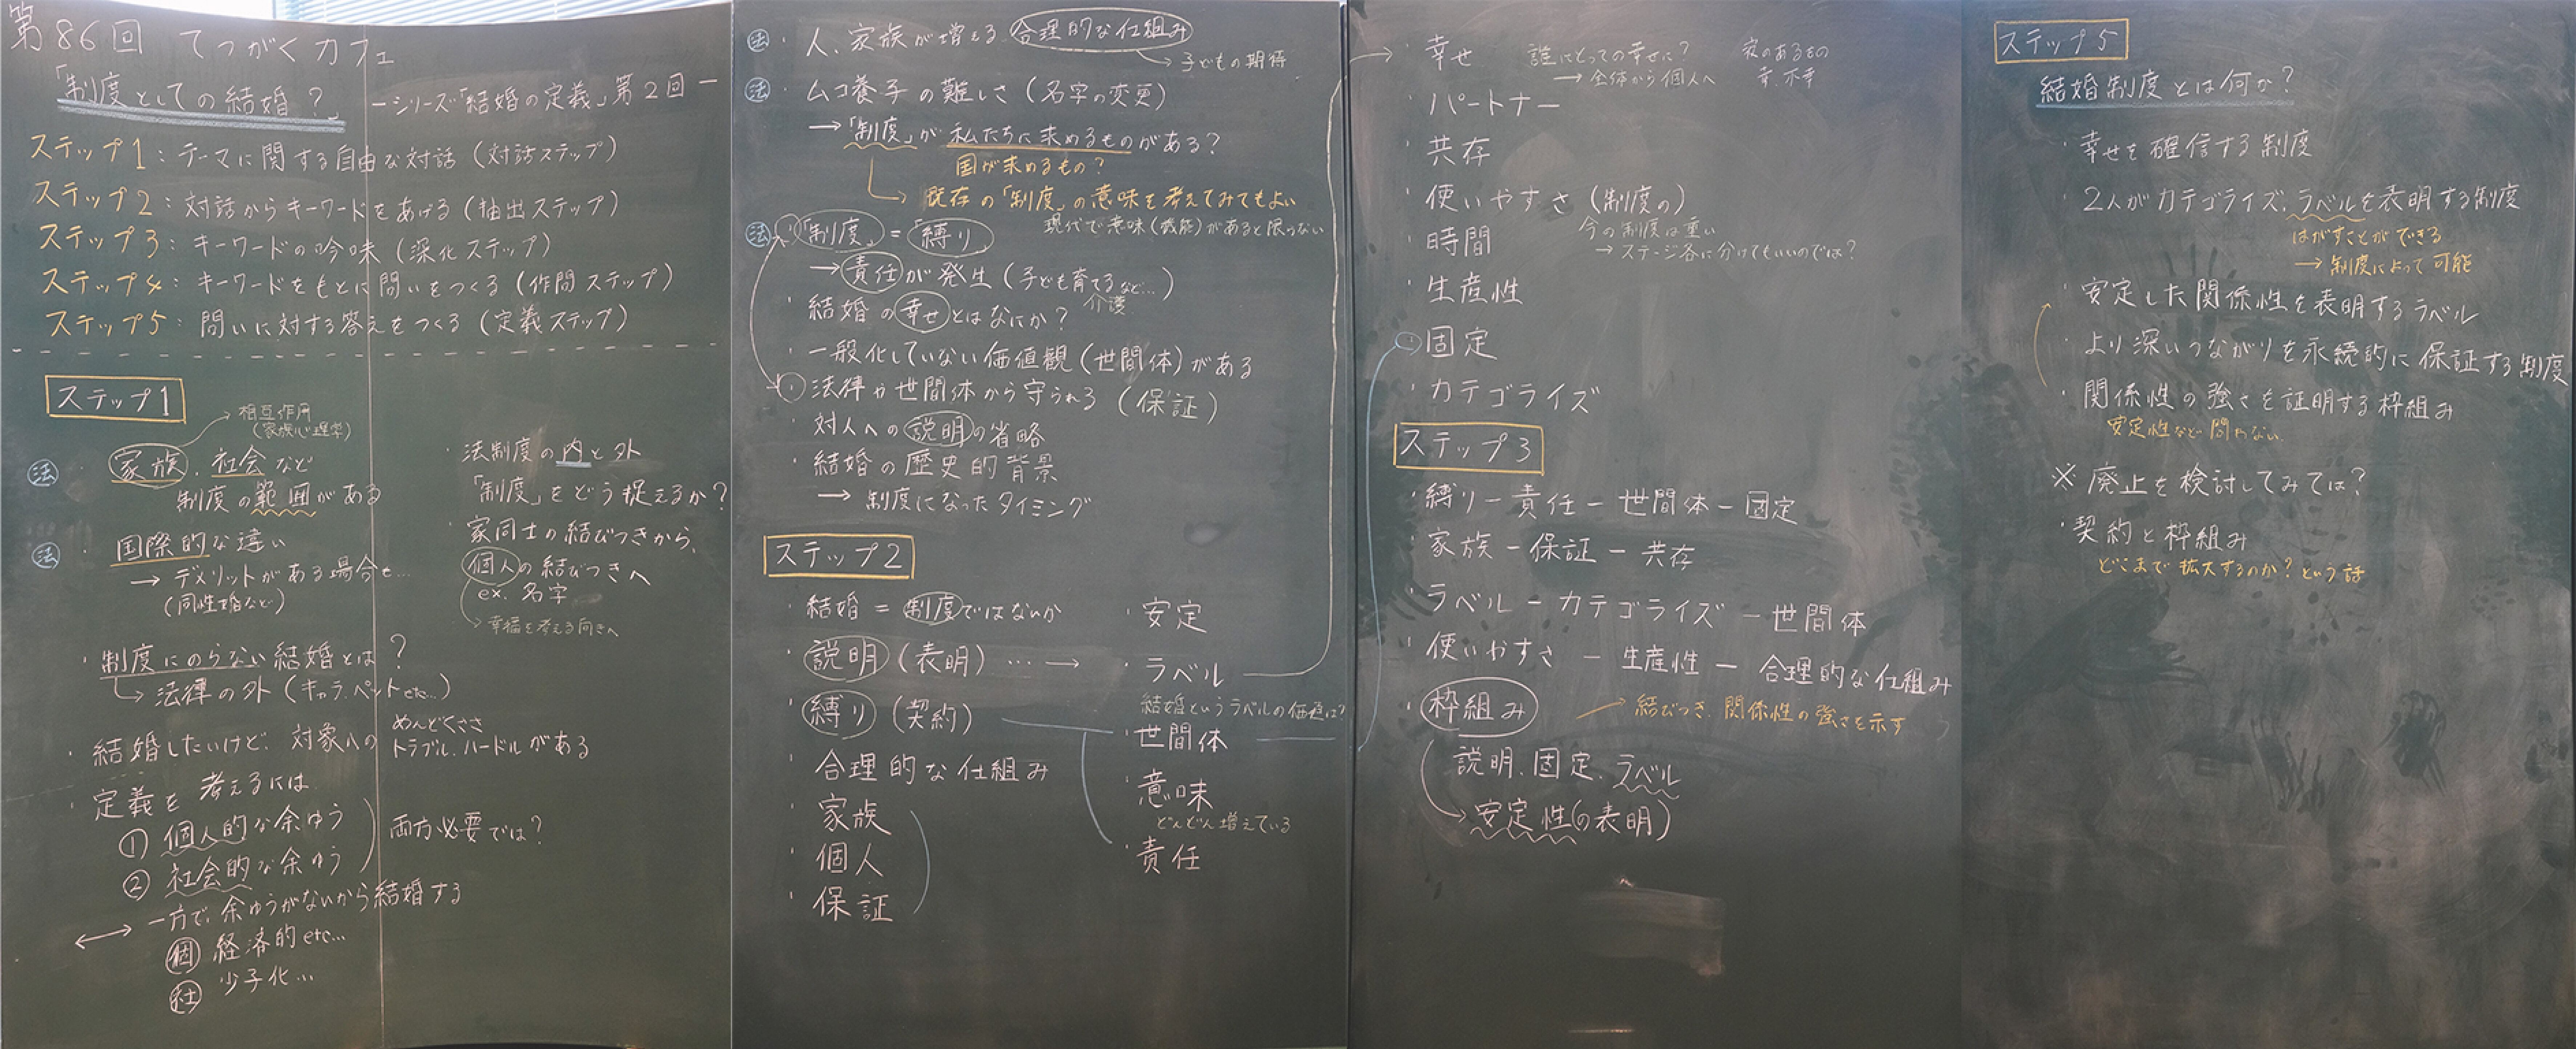 第86回 てつがくカフェ
「制度としての結婚？」 ーシリーズ「結婚の定義」第2回ー
ステップ1：テーマに関する自由な対話（対話ステップ）
ステップ2：対話からキーワードをあげる（抽出ステップ）
ステップ3：キーワードの吟味（深化ステップ）
ステップ4：キーワードをもとに問いをつくる（作問ステップ）
ステップ5：問いに対する答えをつくる（定義ステップ）
ステップ1
→ 相互作用
（家族心理学）
法 ・家族、社会など
制度の範囲がある
法 ・国際的な違い
→ デメリットがある場合も…
（同性婚など）
・制度にのらない結婚とは？
→ 法律の外（キャラ、ペットetc…）
・結婚したいけど、対象への めんどくささ
トラブル、ハードルがある
・定義を考えるには
① 個人的な余ゆう
② 社会的な余ゆう
両方必要では？
⟷ 一方で、余ゆうがないから結婚する
個 経済的etc…
社 少子化…
・法制度の内と外
「制度」をどう捉えるか？
・家同士の結びつきから、
個人の結びつきへ
ex. 名字
→ 幸福を考える向きへ
法 ・人、家族が増える 合理的な仕組み
→ 子どもの期待
法 ・ムコ養子の難しさ（名字の変更）
→「制度」が私たちに求めるものがある？
国が求めるもの？
→ 既存の「制度」の意味を考えてみてもよい
現代で意味（機能）があると限らない
法 ・「制度」＝「縛り」
→ 責任が発生（子ども育てるなど…）
介護
・結婚の幸せとはなにか？
・一般化していない価値観（世間体）がある
・法律や世間体から守られる（保証）
・対人への説明の省略
・結婚の歴史的背景
→ 制度になったタイミング
ステップ2
・結婚＝制度ではないか
・説明（表明）…→
・縛り（契約）
・合理的な仕組み
・家族
・個人
・保証
・安定
・ラベル
結婚というラベルの価値は？
・世間体
・意味
どんどん増えている
・責任
・幸せ 誰にとっての幸せに？
→ 全体から個人へ
幸、不幸
・パートナー
・共存
・使いやすさ（制度の）
今の制度は重い
→ ステージ各に分けてもいいのでは？
・時間
・生産性
・固定
・カテゴライズ
ステップ3
・縛りー責任ー世間体ー固定
・家族ー保証ー共存
・ラベルーカテゴライズー世間体
・使いやすさー生産性ー合理的な仕組み
・枠組み → 結びつき、関係性の強さを示す
説明、固定、ラベル
→ 安定性（の表明）
ステップ5
結婚制度とは何か？
・幸せを確信する制度
・2人がカテゴライズ、ラベルを表明する制度
はがすことができる
→ 制度によって可能
・安定した関係性を表明するラベル
・より深いつながりを永続的に保証する制度
・関係性の強さを証明する枠組み
安定性など問わない
※廃止を検討してみては？
・契約と枠組み
どこまで拡大するのか？という話